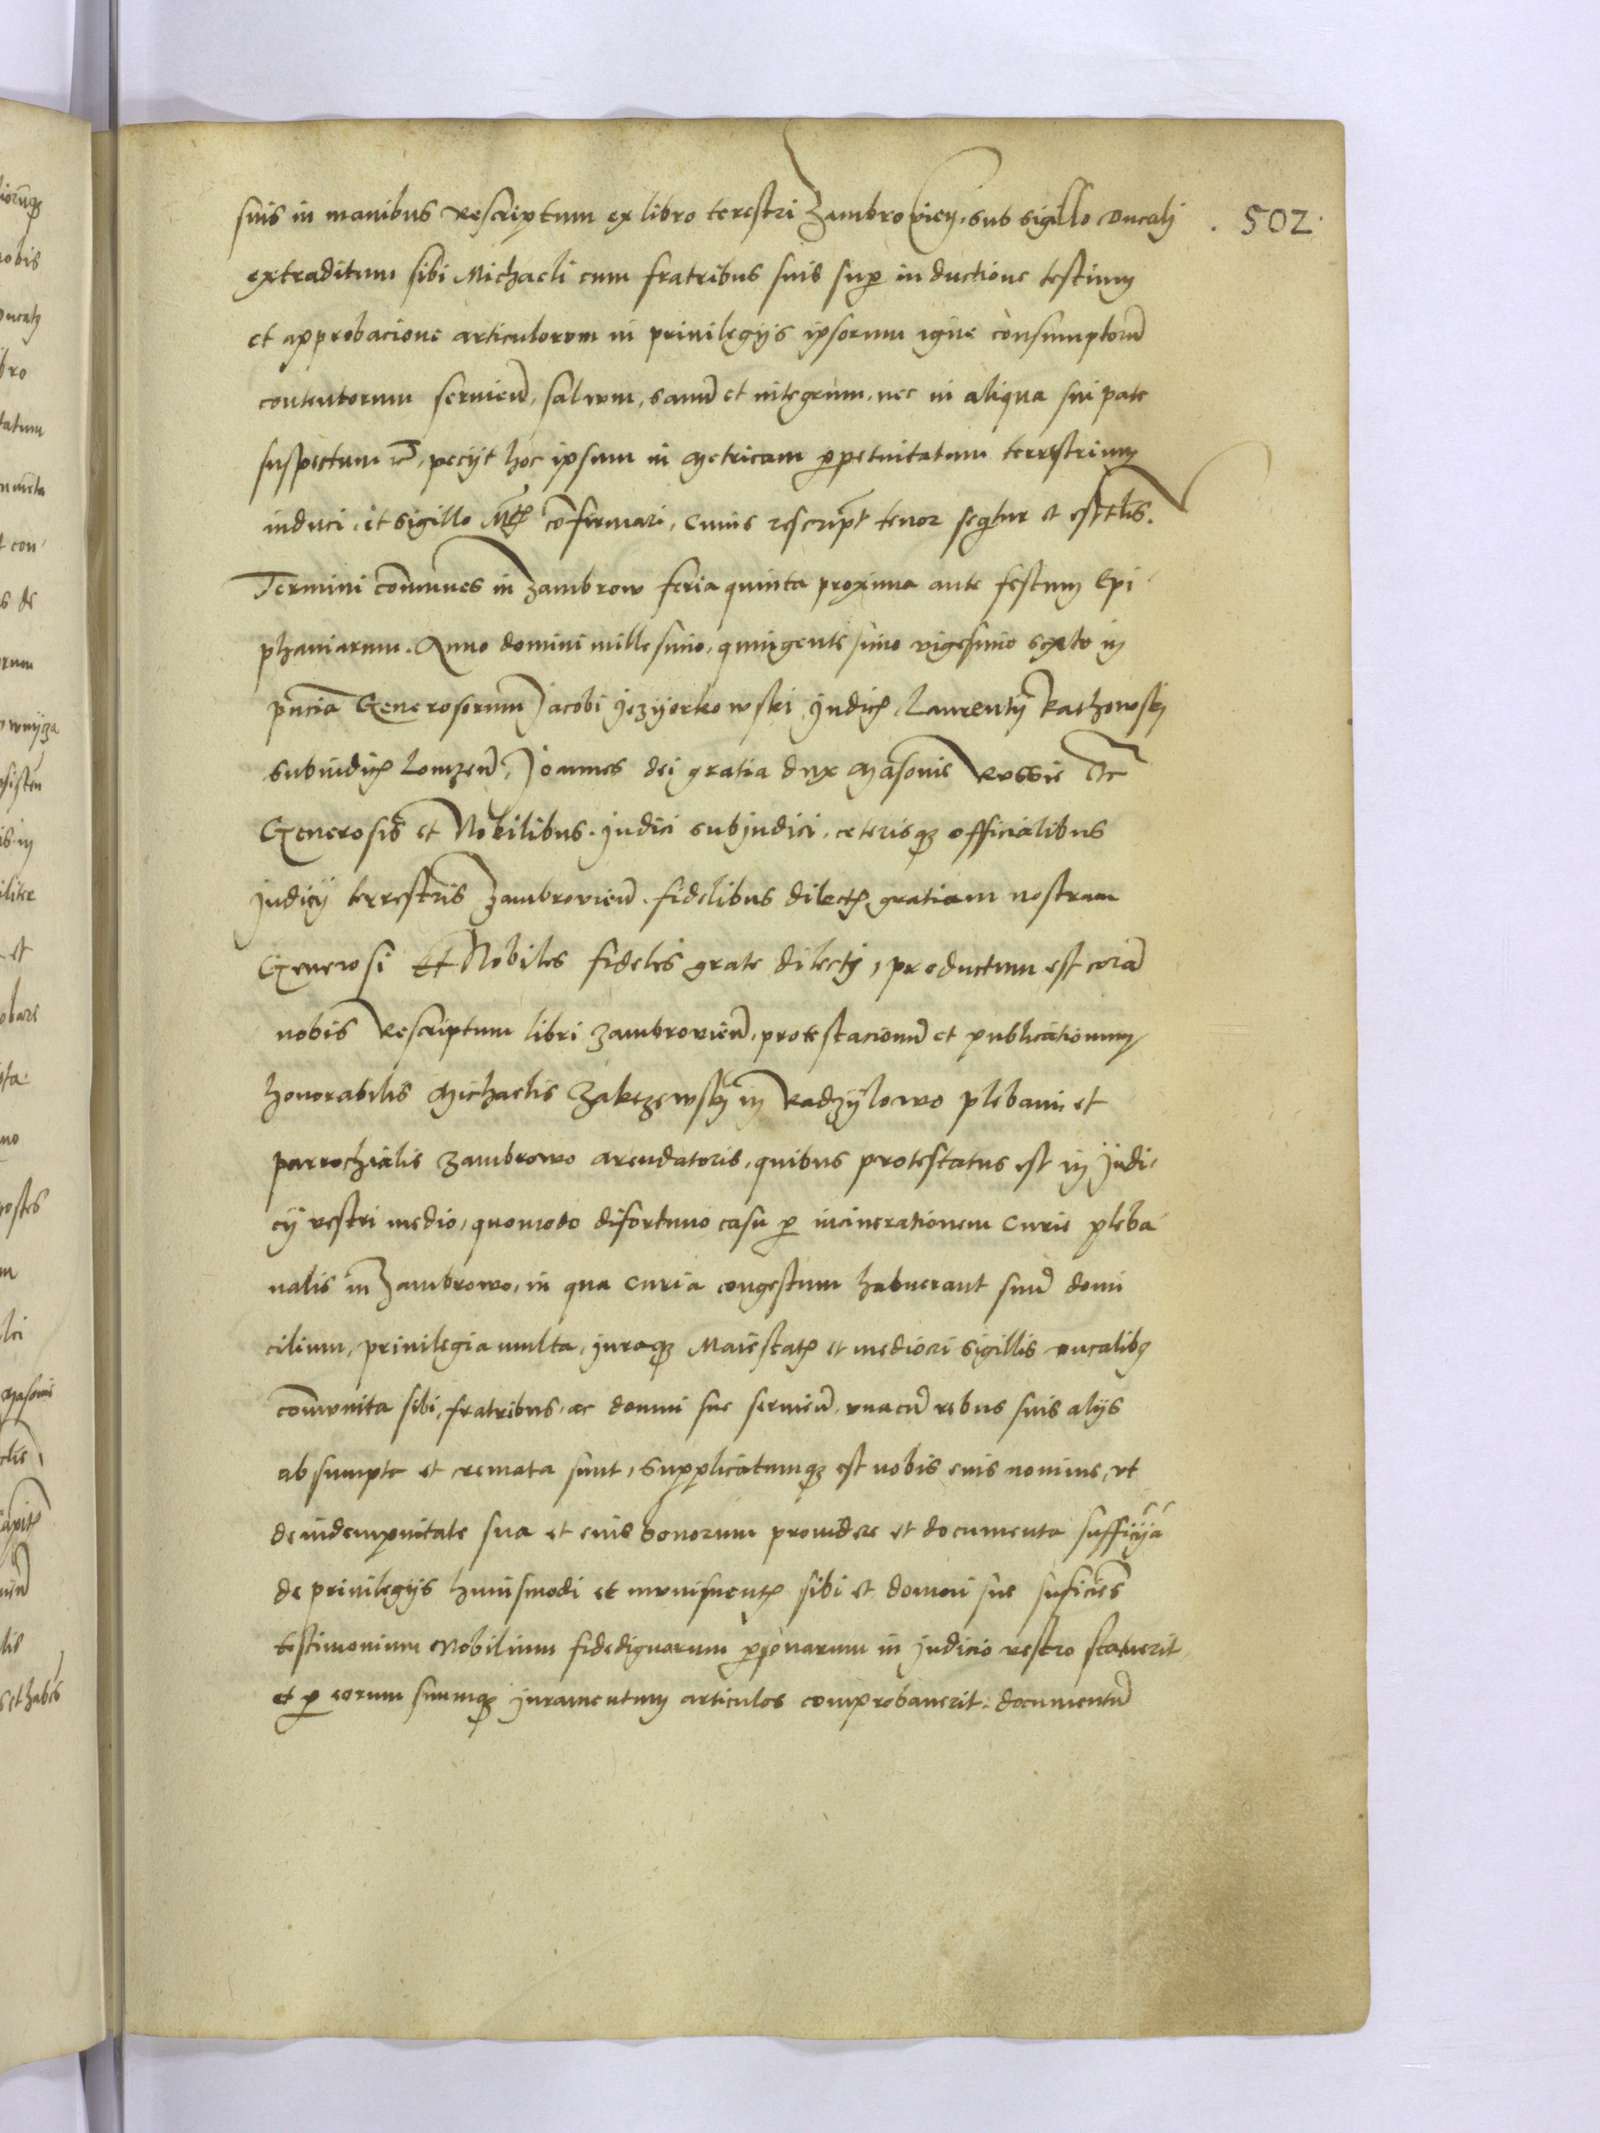 suis in manibus rescriptum ex libro terestri Zambrovien. sub sigillo ducalj . 502.
extraditum sibi Michaeli cum fratribus suis sup inductione testium
et approbacione articulorum in privilegijs ipsorum igne consumptorũ
contentorum servieñ, salvum, sanũ et integrum, nec in aliqua sui parte
suspectum ec, pecijt hoc ipsum in Metricam ppetuitatum terrestrium
induci, et sigillo cõfirmari, cuius rescript tenor seqtur et est tlis.
Termini cõmunes in Zambrow feria quinta proxima ante festum Epi
phaniarum. Anno domini millesimo, quingentesimo vigesimo sexto in
pñcia Generosorum Jacobi Jezyorkowski, Judicz, Laurentij Kathowskj
subiudicz Lomzeñ, Joannes dei gratia dux Masovie Russie Etc
Generosis et Nobilibus. Judici subjudici, ceterisqz officialibus
Judicij terrestris Zambrovieñ. fidelibus dilectz gratiam nostram
Generosi Et Nobiles fideles grate dilectj, productum est corã
nobis Rescriptum libri Zambrovieñ, protestacionũ et publicationum
honorabilis Michaelis Zakrzewskj in Radzylowo plebani et
parrochialis Zambrowo arendatoris, quibus protestatus est in Judi
cij vestri medio, quomodo disfortuno casu p incinerationem curie pleba
nalis in Zambrowo, in qua curia congestum habuerant suũ domi
cilium, privilegia multa, juraqz Maiestatz et mediori sigillis ducalibq
cõmunita sibi, fratribus, ac domui sue servieñ, vnacũ rebus suis alijs
absumpta et cremata sunt, Supplicatumqz est nobis eius nomine, vt
de indempnitate sua et eius bonorum providere et documenta
de privilegijs huiusmodi et sibi et domui sue suficiẽs
testimonium Nobilium fidedignarum psonarum in judicio vestro statuerit,
et p eorum suumqz juramentum articulos comprobaverit. documentũ